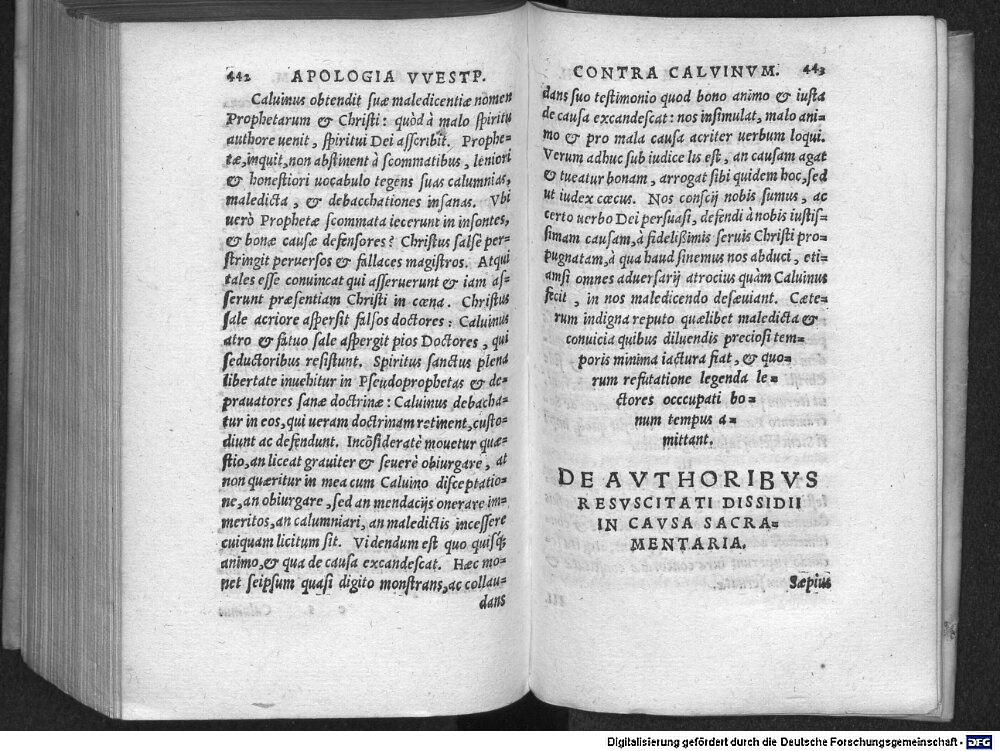 442 APOLOGIA VVESTP.
Caluinus obtendit suæ maledicentiæ nomen
Prophetarum & Christi: quòd à malo spiritu
authore uenit, spiritui Dei asscribit. Prophe-
tæ, inquit, non abstinent à scommatibus, leniori
& honestiori uocabulo tegens suas calumnias,
maledicta, & debacchationes insanas. Vbi
uerò Prophetæ scommata iecerunt in insontes,
& bonæ causæ defensores? Christus salsè per-
stringit peruersos & fallaces magistros. Atqui
tales esse conuincat qui asseruerunt & iam as-
serunt præsentiam Christi in cœna. Christus
sale acriore aspersit falsos doctores: Caluinus
atro & fatuo sale aspergit pios Doctores, qui
seductoribus resistunt. Spiritus sanctus plena
libertate inuehitur in Pseudoprophetas & de-
prauatores sanæ doctrinæ: Caluinus debacha-
tur in eos, qui ueram doctrinam retinent, custo-
diunt ac defendunt. Incōsideratè mouetur quæ-
stio, an liceat grauiter & seuerè obiurgare, at
non quæritur in mea cum Caluino disceptatio-
ne, an obiurgare, sed an mendacijs onerare im-
meritos, an calumniari, an maledictis incessere
cuiquam licitum sit. Videndum est quo quisq́;
animo, & qua de causa excandescat. Hæc mo-
net seipsum quasi digito monstrans, ac collau-
dans
CONTRA CALVINVM. 443
dans suo testimonio quod bono animo & iusta
de causa excandescat: nos insimulat, malo ani-
mo & pro mala causa acriter uerbum loqui.
Verum adhuc sub iudice lis est, an causam agat
& tueatur bonam, arrogat sibi quidem hoc, sed
ut iudex cœcus. Nos conscij nobis sumus, ac
certo uerbo Dei persuasi, defendi à nobis iustis-
simam causam, à fidelißimis seruis Christi pro-
pugnatam, à qua haud sinemus nos abduci, eti-
amsi omnes aduersarij atrocius quàm Caluinus
fecit, in nos maledicendo desæuiant. Cæte-
rum indigna reputo quælibet maledicta &
conuicia quibus diluendis preciosi tem-
poris minima iactura fiat, & quo-
rum refutatione legenda le-
ctores occcupati bo-
num tempus a-
mittant.
DE AVTHORIBVS
RESVSCITATI DISSIDII
IN CAVSA SACRA-
MENTARIA.
Sæpius
Digitalisierung gefördert durch die Deutsche Forschungsgemeinschaft - DFG